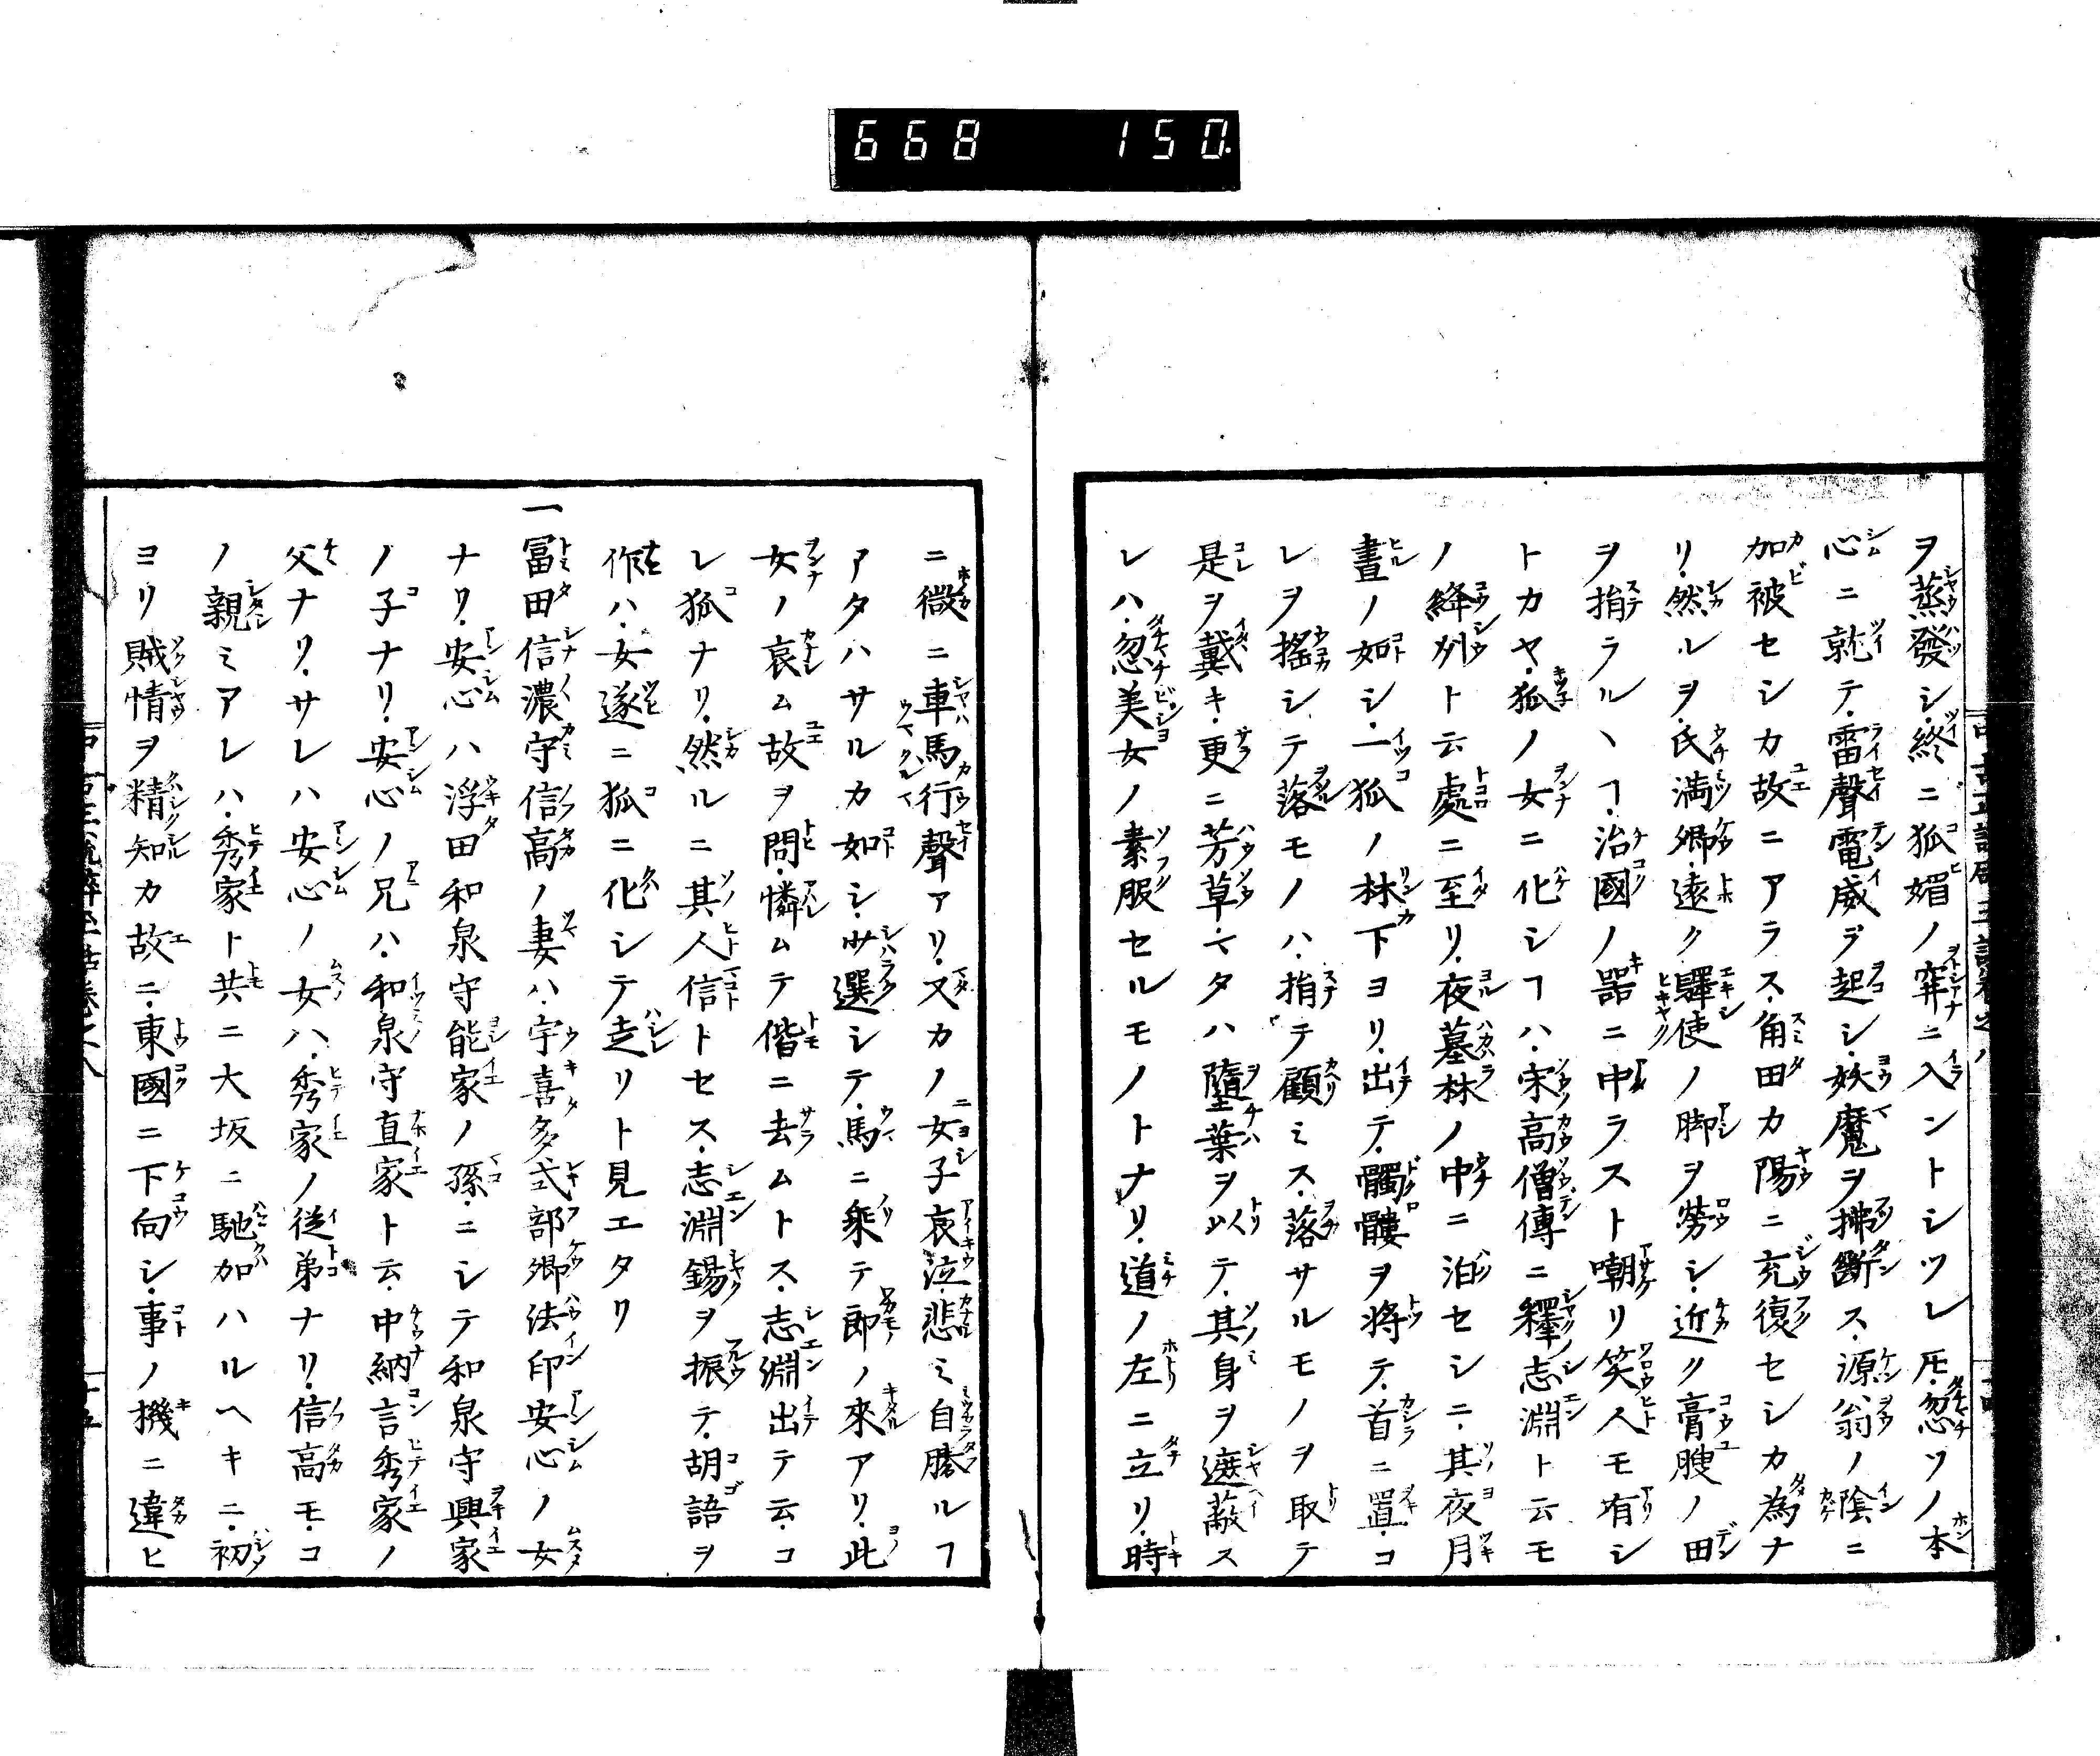 668 150
ヲ蒸發シ終ニ狐媚ノ穽ニ入ントシツレ𪜈忽ツノ本
心ニ就テ雷聲電威ヲ起シ妖魔ヲ拂斷ス源翁ノ陰ニ
加被セシカ故ニアラス角田カ陽ニ充復セシカ為ナ
リ然ルヲ氏満卿遠ク驛使ノ脚ヲ勞シ近ク膏腴ノ田
ヲ捐ラルヽヿ治國ノ器ニ中ラスト嘲リ笑人モ有シ
トカヤ狐ノ女ニ化シヿハ宋高僧傳ニ釋志淵ト云モ
ノ絳州ト云處ニ至リ夜墓林ノ中ニ泊セシニ其夜月
晝ノ如シ一狐ノ林下ヨリ出テ髑髏ヲ將テ首ニ置コ
レヲ搖シテ落モノハ捐テ顧ミス落サルモノヲ取テ
是ヲ戴キ更ニ芳草マタハ墮葉ヲ以テ其身ヲ遮蔽ス
レハ忽美女ノ素服セルモノトナリ道ノ左ニ立リ時
ニ微ニ車馬行聲アリ又カノ女子哀泣悲ミ自勝ルヿ
アタハサルカ如シ少選シテ馬ニ乘テ郎ノ來アリ此
女ノ哀ム故ヲ問憐ムテ偕ニ去ムトス志淵出テ云コ
レ狐ナリ然ルニ其人信トセス志淵錫ヲ振テ胡語ヲ
作ハ女遂ニ狐ニ化シテ走リト見エタリ
一冨田信濃守信高ノ妻ハ宇喜多式部卿法印安心ノ女
ナリ安心ハ浮田和泉守能家ノ孫ニシテ和泉守興家
ノ子ナリ安心ノ兄ハ和泉守直家ト云中納言秀家ノ
父ナリサレハ安心ノ女ハ秀家ノ従弟ナリ信高モコ
ノ親ミアレハ秀家ト共ニ大坂ニ馳加ハルヘキニ初
ヨリ賊情ヲ精知カ故ニ東國ニ下向シ事ノ機ニ違ヒ